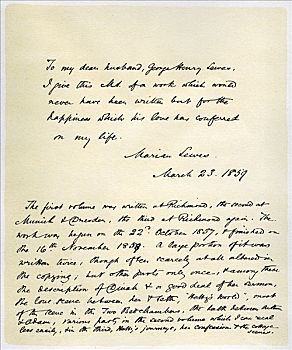 To my dear husband, George Henry Lewes,
I give this M.S. of a work which would
never have been written but for the
happiness which his love has conferred
on my life.
Marian Lewes
March 23. 1859
The first volume was written at Richmond, the second at
Munich & Dresden, the third at Richmond again. The
work was begun on the 22d. October 1857, & finished on
the 16th November 1858. A large portion of it was
written twice, though often scarcely at all altered in
the copying; but other parts only once, & among these
the description of Dinah & a good deal of her sermon,
the love scene between her & Seth, "Hetty's World", most
of the scene in the Two Bedchambers, the talk between Arthur
& Adam, various parts in the second volume which I can recal
less easily, & in the third, Hetty's journeys, her confession & the cottage
scenes.